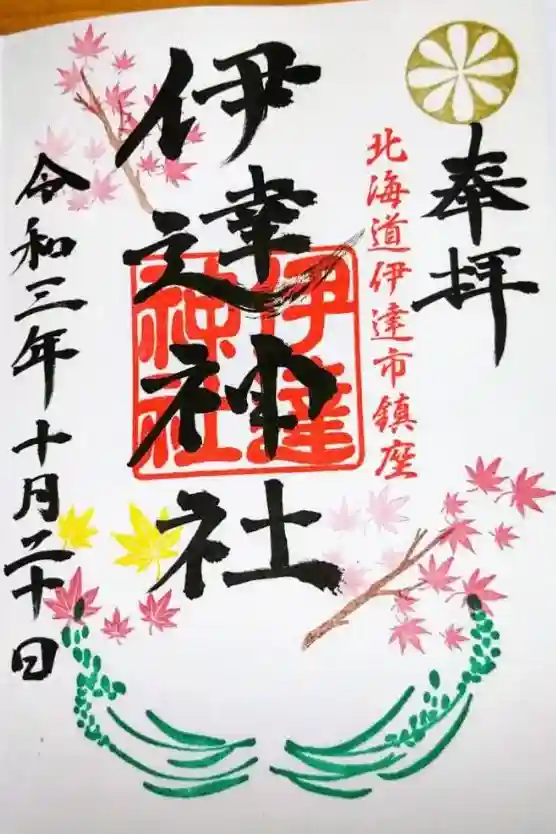 奉拝
北海道伊達市鎮座
伊達神社
伊達
神社
令和三年十月二十日